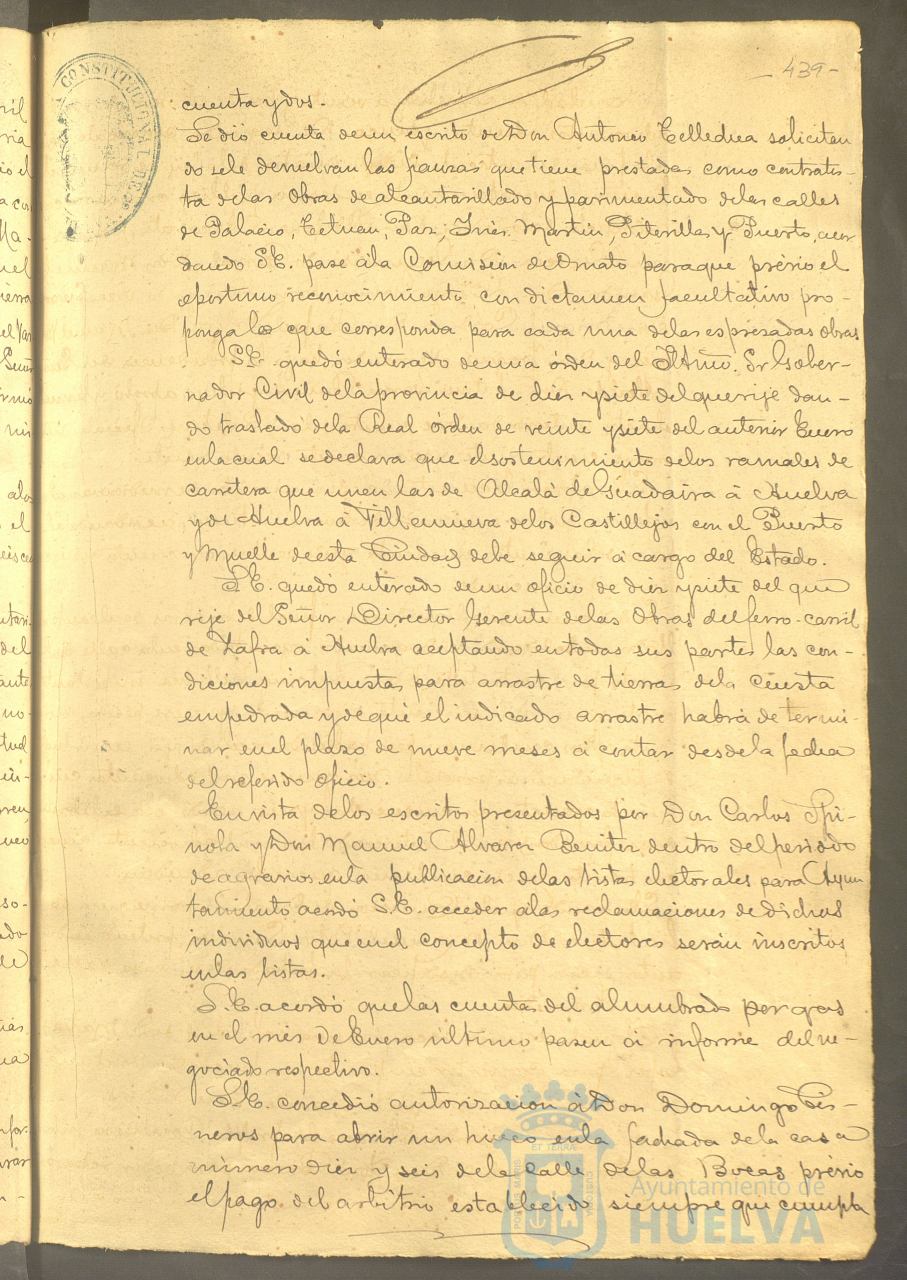 CONSTITUCIONAL DE
- 439 -
cuenta y dos.
Se dió cuenta de un escrito de Don Antonio solicitan
do se le devuelvan las fianzas que tiene prestadas como contratis-
ta de las Obras de alcantarillado y pavimentado de las calles
de Palacio, Tetuan, Paz, Inés Martin, Piterilla y Puerto, acor
dando S.E. pase á la Comisión de Ornato para que prévio el
oportuno reconocimiento con dictamen facultativo pro-
ponga lo que corresponda para cada una de las espresadas Obras
S.E. quedó enterado de una órden del Iltmo. Sr Gober-
nador Civil de la provincia de diez y siete del que rije dan-
do traslado de la Real órden de veinte y siete del anterior Enero
en la cual se declara que el sostenimiento de los ramales de
carretera que unen las de Alcalá de Guadaira á Huelva
y de Huelva á Villanueva de los Castillejos con el Puerto
y Muelle de esta Ciudad debe seguir á cargo del Estado.
S.E. quedó enterado de un oficio de diez y siete del que
rije del Señor Director Gerente de las Obras del ferro-carril
de Zafra á Huelva aceptando en todas sus partes las con-
diciones impuestas para arrastre de tierras de la cuesta
empedrada y de que el indicado arrastre habrá de termi-
nar en el plazo de nueve meses á contar desde la fecha
del referido oficio.
En vista de los escritos presentados por Don Carlos Spi-
nola y Don Manuel Alvarez Benitez dentro del periodo
de agravios en la publicacion de las listas electorales para Ayun
tamiento acordó S.E. acceder á las reclamaciones de dichos
individuos que en el concepto de electores serán inscritos
en las listas.
S.E. acordó que las cuentas del alumbrado por gas
en el mes de Enero último pasen á informe del ne-
gociado respectivo.
S.E. concedió autorizacion á Don Domingo Cis-
neros para abrir un hueco en la fachada de la casa
número diez y seis de la calle de las Bocas prévio
el pago del arbitrio establecido siempre que cumpla
Ayuntamiento de
HUELVA